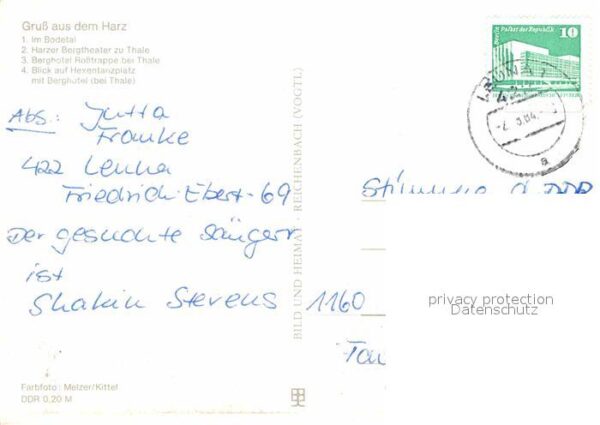 Gruß aus dem Harz
1. Im Bodetal
2. Harzer Bergtheater zu Thale
3. Berghotel Roßtrappe bei Thale
4. Blick auf Hexentanzplatz
mit Berghotel (bei Thale)
Berlin Palast der Republik
10
LEUNA 1
422
a
Abs.: Jutta
Franke
422 Leuna
Friedrich-Ebert-69
Der gesuchte Sänger
ist
Shakin Stevens
BILD UND HEIMAT REICHENBACH (VOGTL)
Stimme d. DDR
1160
privacy protection
Datenschutz
Farbfoto: Melzer/Kittel
DDR 0,20 M